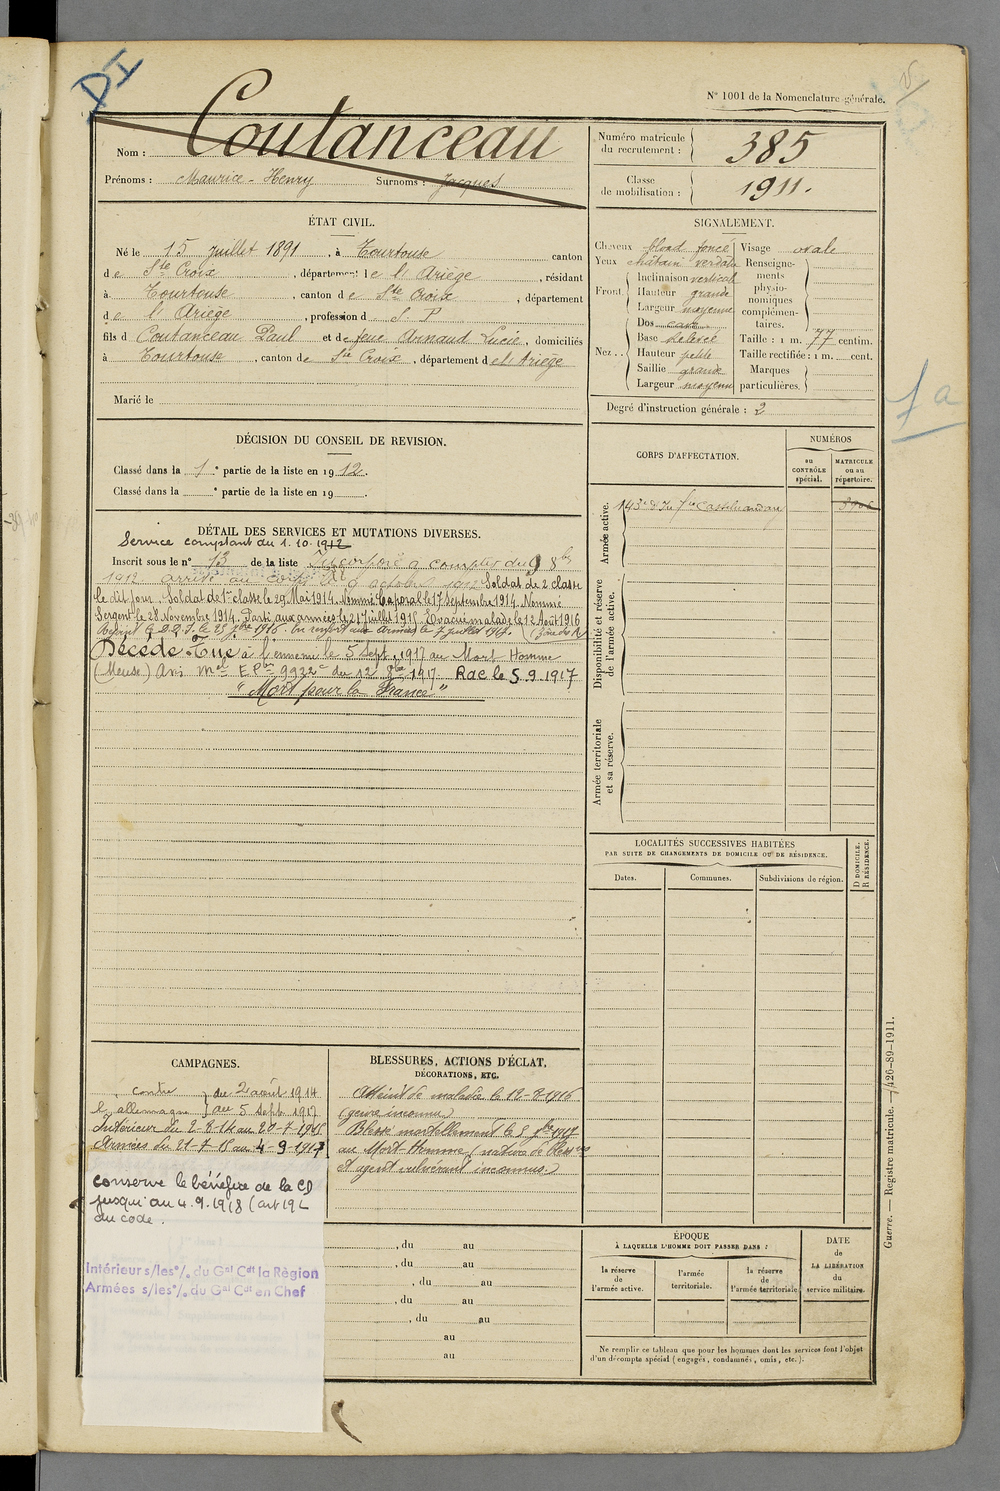 DI
N° 1001 de la Nomenclature générale.
Nom : Coutanceau
Prénoms : Maurice - Henry Surnoms : Jacques
Numéro matricule du recrutement : 385
Classe de mobilisation : 1911.
ÉTAT CIVIL.
Né le 15 juillet 1891, à Tourtouse canton
de Ste Croix, département de l'Ariège, résidant
à Tourtouse, canton de Ste Croix, département
de l'Ariège, profession d S. P
fils d Coutanceau Paul et de feue Arnaud Lucie, domiciliés
à Tourtouse, canton de Ste Croix, département de l'Ariège
Marié le
SIGNALEMENT.
Cheveux blond foncé
Yeux châtain verdâtre
Front. Inclinaison verticale
Hauteur grande
Largeur moyenne
Nez.. Dos cave
Base relevée
Hauteur petite
Saillie grande
Largeur moyenne
Visage ovale
Renseignements physionomiques complémentaires.
Taille : 1 m. 77 centim.
Taille rectifiée : 1 m. cent.
Marques particulières.
Degré d'instruction générale : 2
1 a
DÉCISION DU CONSEIL DE REVISION.
Classé dans la 1e partie de la liste en 1912.
Classé dans la e partie de la liste en 19
CORPS D'AFFECTATION.
NUMÉROS
au CONTRÔLE spécial.
MATRICULE ou au répertoire.
Armée active.
143e d'Inf ie Castelnaudary
Disponibilité et réserve de l'armée active.
Armée territoriale et sa réserve.
DÉTAIL DES SERVICES ET MUTATIONS DIVERSES.
Service comptant du 1.10.1912
Inscrit sous le n° 13 de la liste Incorporé à compter du 9 8bre
1912 arrivé au corps le 9 octobre 1912 Soldat de 2 classe
le dit jour. Soldat de 1re classe le 29 Mai 1914. Nommé Caporal le 17 Septembre 1914. Nommé
Sergent le 28 Novembre 1914. Parti aux armées le 21 Juillet 1915. Evacué malade le 12 Août 1916
Rejoint le D.D.I. le 23 9bre 1916. En renfort aux Armées le 7 juillet 1917.
Décédé - Tué à l'ennemi le 5 Sept. 1917 au Mort Homme
(Meuse) Avis Mel E Pbr 9922c du 12 8bre 1917 Rac le 5.9.1917
"Mort pour la France"
LOCALITÉS SUCCESSIVES HABITÉES
PAR SUITE DE CHANGEMENTS DE DOMICILE OU DE RÉSIDENCE.
Dates.
Communes.
Subdivisions de région.
D DOMICILE.
R RÉSIDENCE.
CAMPAGNES.
contre l'allemagne } du 2 août 1914
au 5 sept 1917
Intérieur du 2-8-14 au 20-7-1915
Armées du 21-7-15 au 4-9-1917
conserve le bénéfice de la CD
jusqu'au 4.9.1918 (art 19 L
du code.
Intérieur s/les °/o du Gal Cdt la Règion
Armées s/les °/o du Gal Cdt en Chef
BLESSURES, ACTIONS D'ÉCLAT,
DÉCORATIONS, ETC.
Atteint de maladie le 12-8-1916
(genre inconnu)
Blessé mortellement le 5 7bre 1917
au Mort-Homme (nature de bless res
et agent vulnérant inconnus.)
, du au
, du au
, du au
, du au
, du au
au
au
ÉPOQUE
À LAQUELLE L'HOMME DOIT PASSER DANS :
la réserve de l'armée active.
l'armée territoriale.
la réserve de l'armée territoriale
DATE de LA LIBÉRATION du service militaire.
Ne remplir ce tableau que pour les hommes dont les services font l'objet
d'un décompte spécial (engagés, condamnés, omis, etc.).
Guerre. — Registre matricule. — 7426-89-1911.